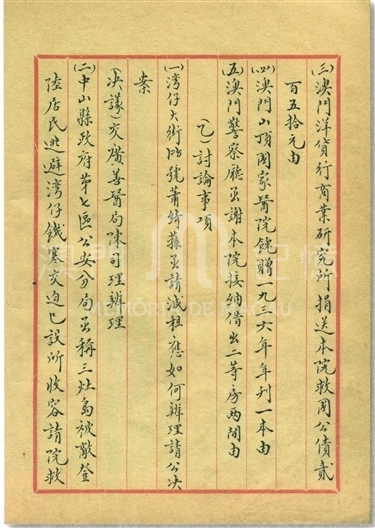 (三)澳門洋貨行商業研究所捐送本院救國公債貳
百五拾元由
(四)澳門山頂國家醫院餽贈一九三六年年刊一本由
(五)澳門警察廳函謝本院接納借出二等房兩間由
(乙)討論事項
(一)湾仔大街 號蕭綺蓀函請減租應如何辦理請公决
案
(决議)交廣善醫局陳司理辦理
(二)中山縣政府第七區公安分局函稱三灶島被敵登
陸居民逃避湾仔饑寒交迫已設所收容請院救
MEMÓRIA DE MACAU